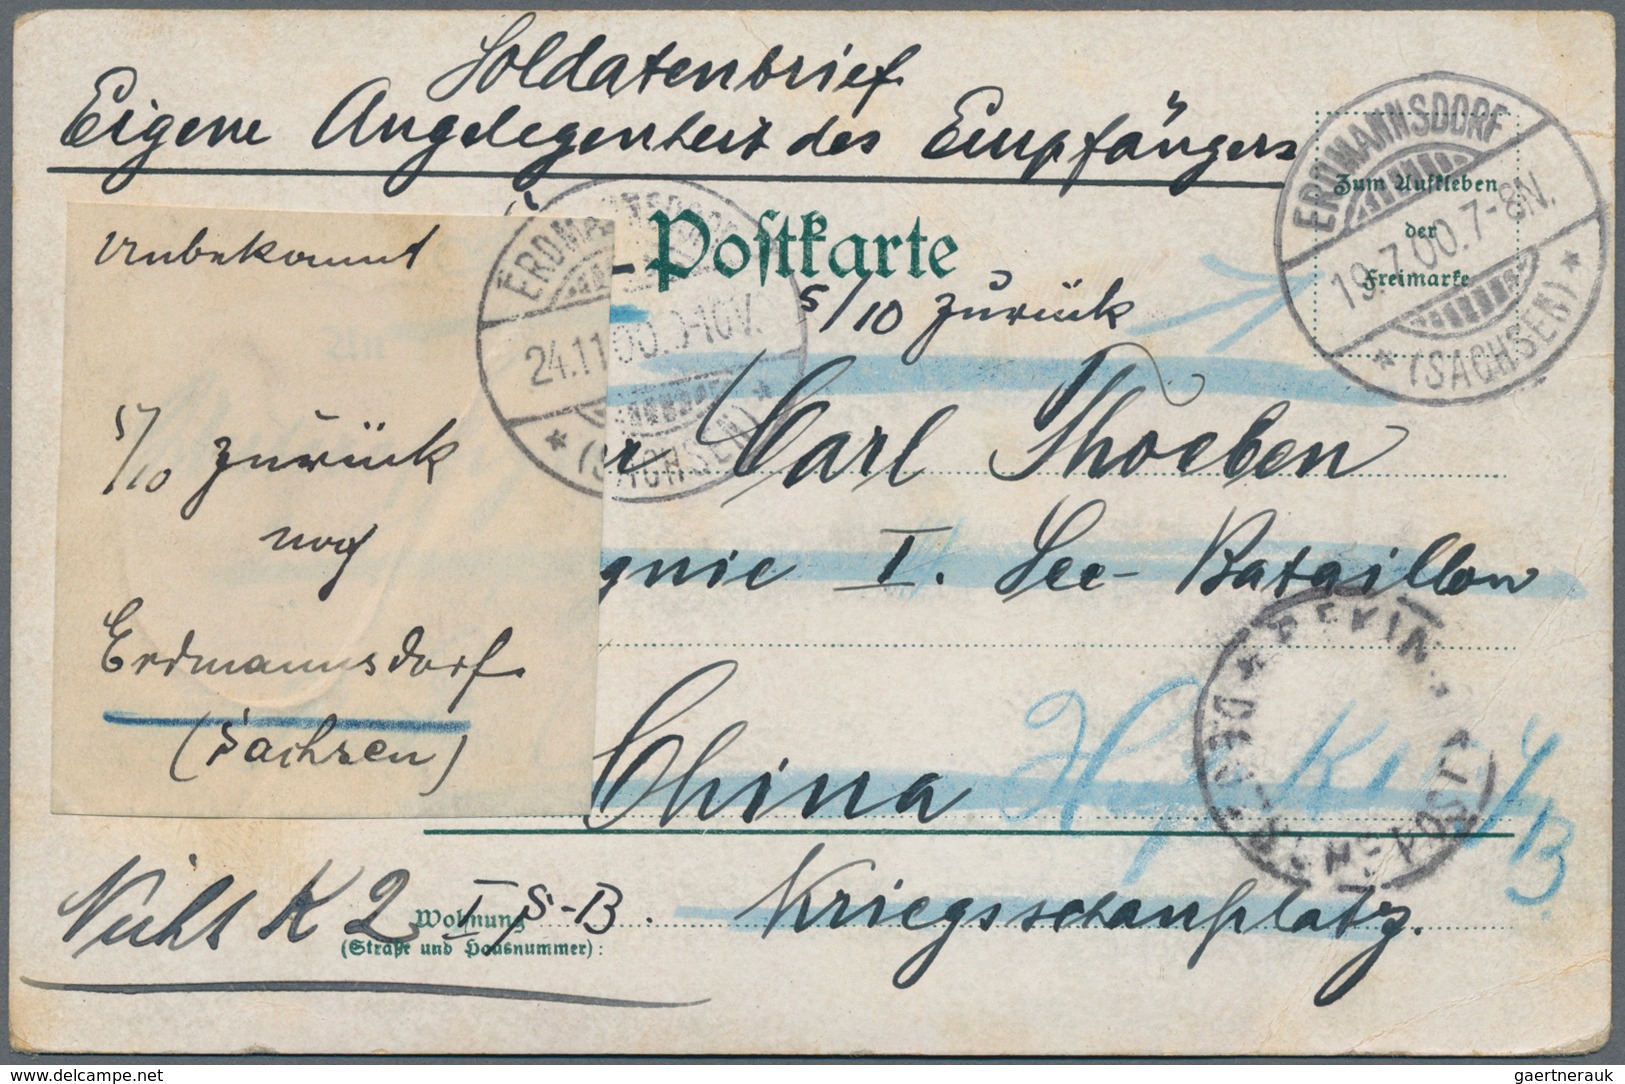 Soldatenbrief
Eigene Angelegenheit des Empfängers
Postkarte
Zum Aufkleben
der
Freimarke
ERDMANNSDORF
19.7.00.7-8N.
* (SACHSEN) *
ERDMANNSDORF
24.11.00. 9-10V.
* (SACHSEN) *
5/10 zurück
Unbekannt
5/10 zurück
nach
Erdmannsdorf
(Sachsen)
r Carl Thoeben
gnie I. See-Bataillon
China
Kriegsschauplatz.
Nicht K 2 I S-B.
Wohnung
(Straße und Hausnummer):
delcampe.net
gaertnerauk